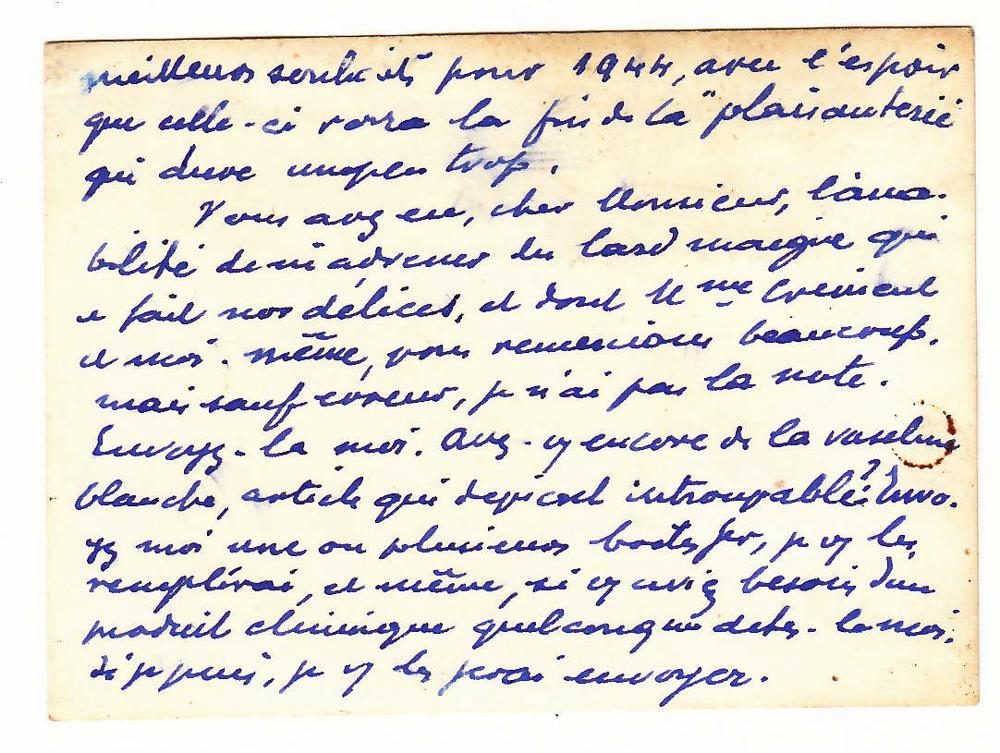 meilleurs souhaits pour 1944, avec l'espoir
que celle-ci verra la fin de la "plaisanterie
qui dure un peu trop.
Vous avez eu, cher Monsieur, l'ama-
bilité de m'adresser du lard maigre qui
a fait nos délices, et dont Mme
et moi-même, vous remercions beaucoup.
mais sauf erreur, je n'ai pas la note.
Envoyez-la moi. Avez-vs encore de la vaseline
blanche, article qui devient introuvable? Envo-
yez moi une ou plusieurs boites fer, je vs les
remplirai, et même, si vs aviez besoin d'un
produit chimique quelconque dites-le moi.
Si je puis, je vs le ferai envoyer.